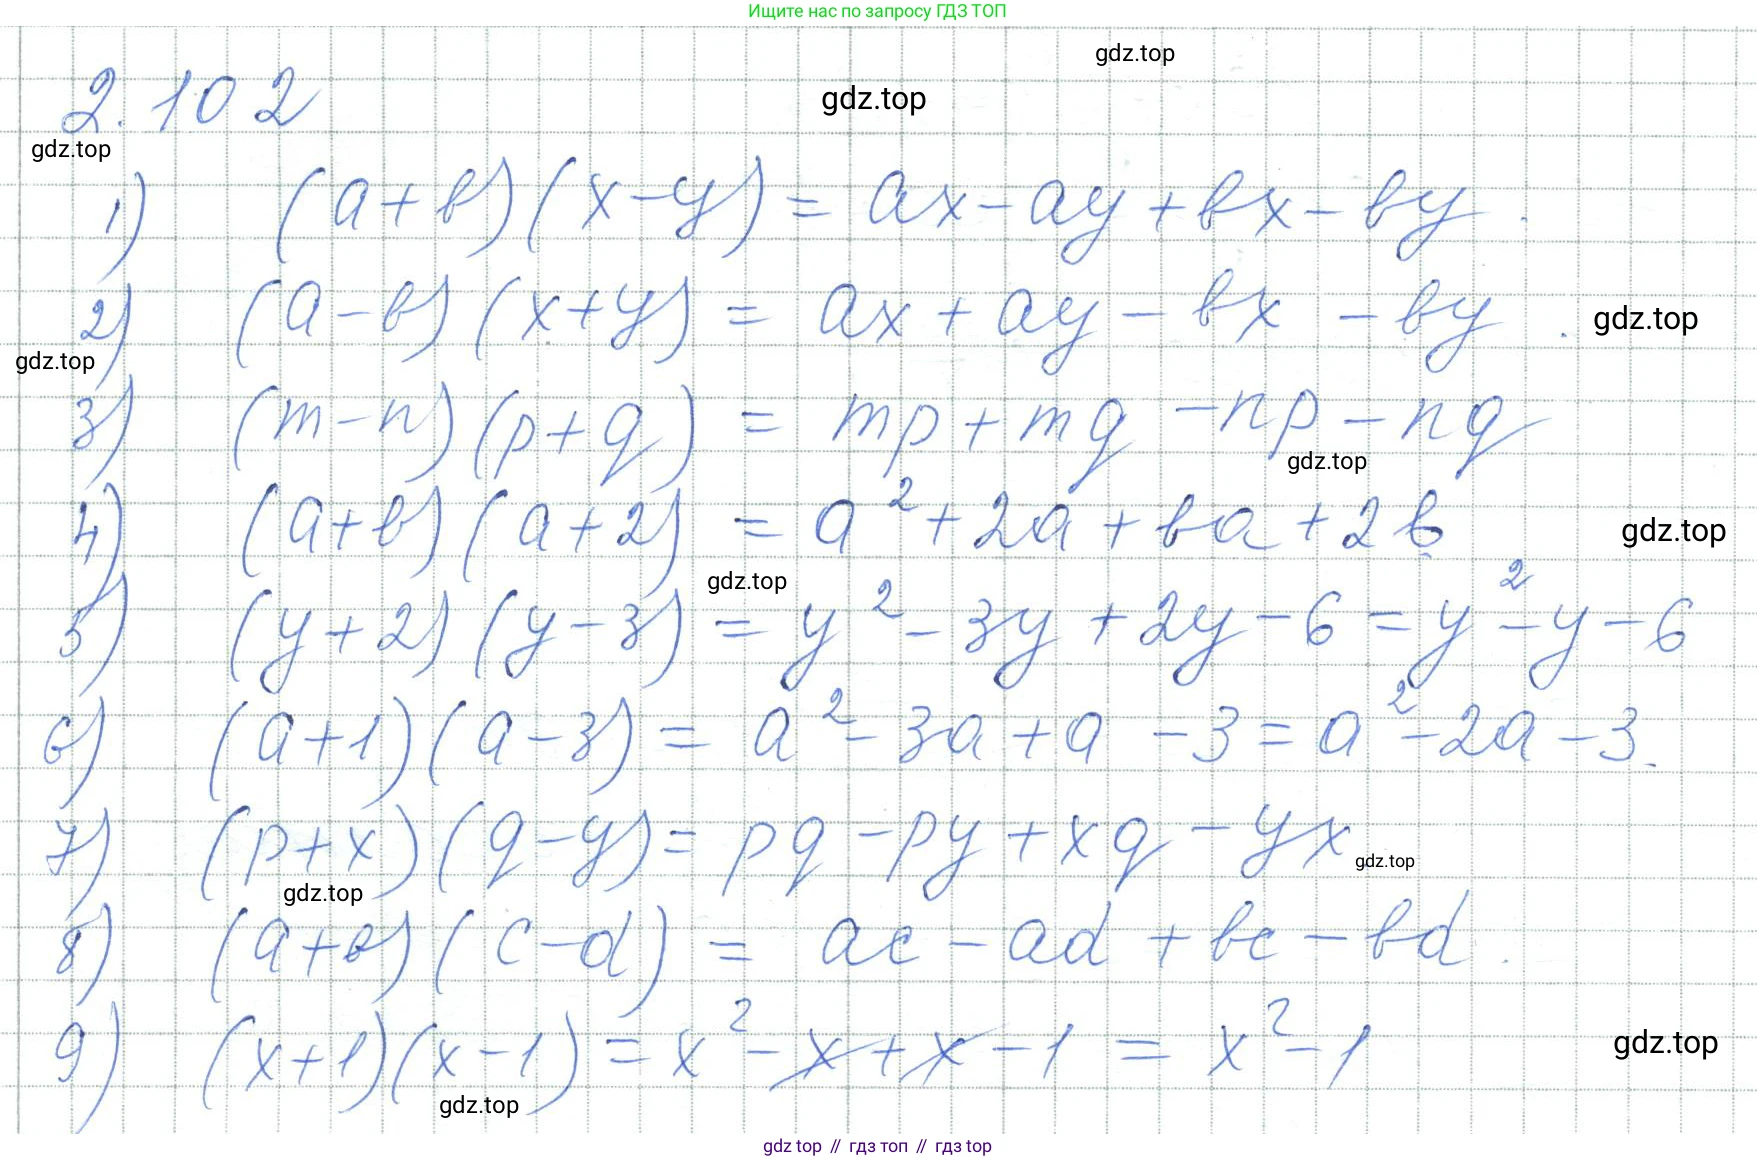 Ищите нас по запросу ГДЗ ТОП
gdz.top
gdz.top
2.102
gdz.top
1) (a+b)(x-y) = ax-ay+bx-by.
2) (a-b)(x+y) = ax+ay-bx-by. gdz.top
gdz.top
3) (m-n)(p+q) = mp+mq-np-nq
gdz.top
4) (a+b)(a+2) = a²+2a+ba+2b gdz.top
gdz.top
5) (y+2)(y-3) = y²-3y+2y-6=y²-y-6
6) (a+1)(a-3) = a²-3a+a-3=a²-2a-3.
7) (p+x)(q-y)= pq-py+xq-yx gdz.top
gdz.top
8) (a+b)(c-d) = ac-ad+bc-bd.
9) (x+1)(x-1)=x²-x+x-1 = x²-1 gdz.top
gdz.top
gdz top // гдз топ // гдз top